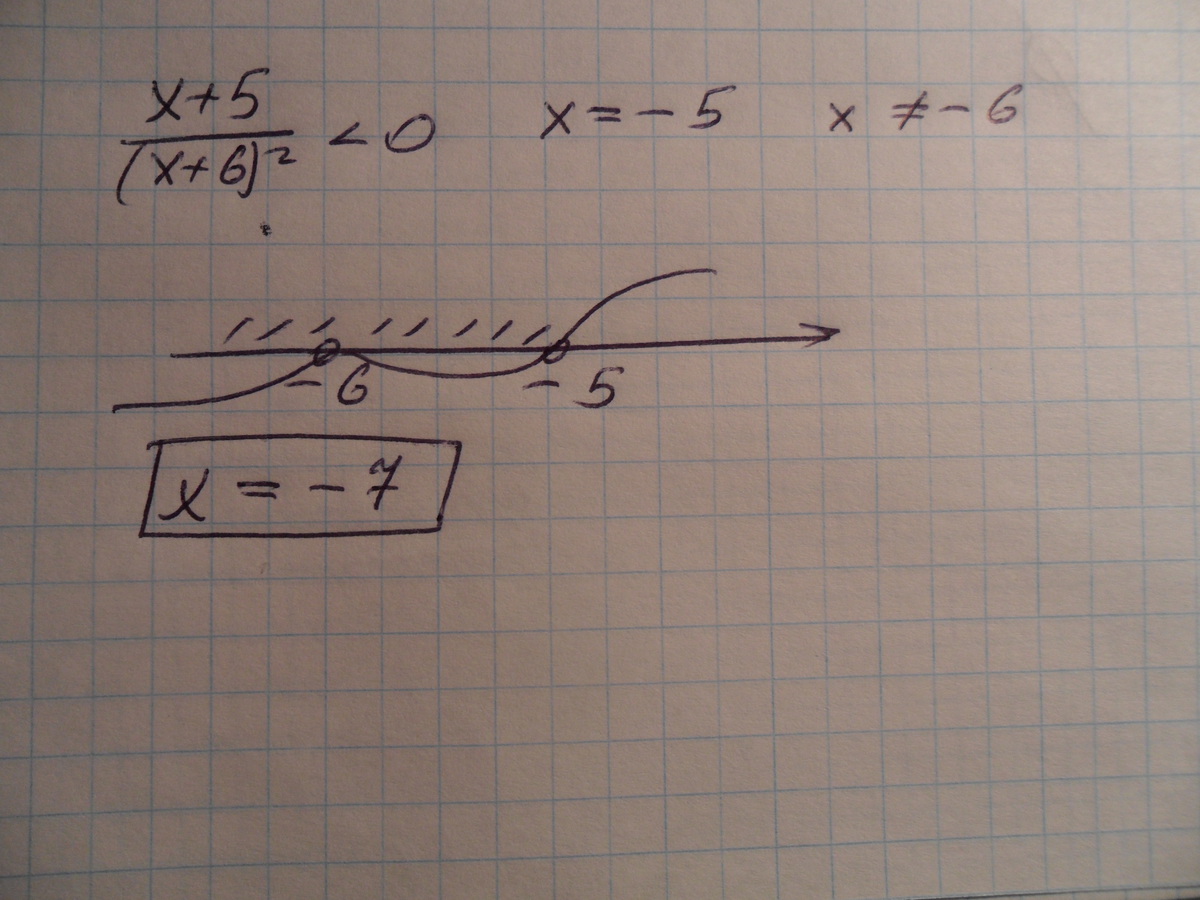 x+5
(x+6)² < 0 x = -5 x ≠ -6
-6 -5
x = -7